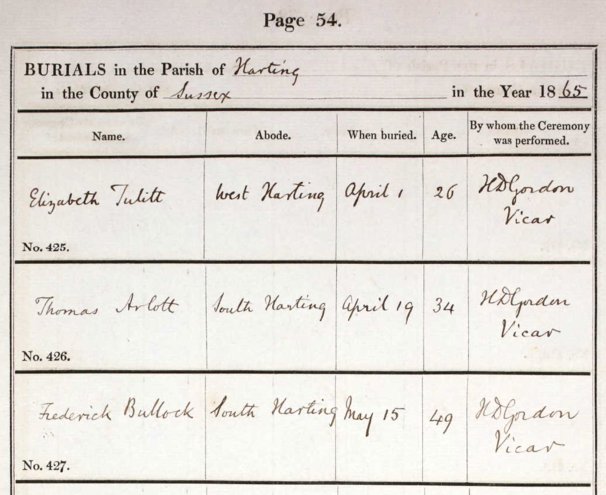 Page 54.
BURIALS in the Parish of Harting
in the County of Sussex in the Year 1865
Name. Abode. When buried. Age. By whom the Ceremony was performed.
Elizabeth Tulitt West Harting April 1 26 HDGordon
Vicar
No. 425.
Thomas Arlott South Harting April 19 34 HDGordon
Vicar
No. 426.
Frederick Bullock South Harting May 15 49 HDGordon
Vicar
No. 427.